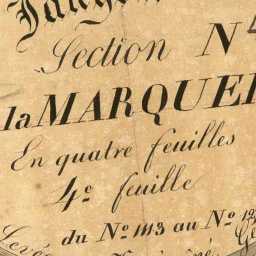 Section N
la MARQUE
En quatre feuilles
4e feuille
du No 1113 au No 12
Levé